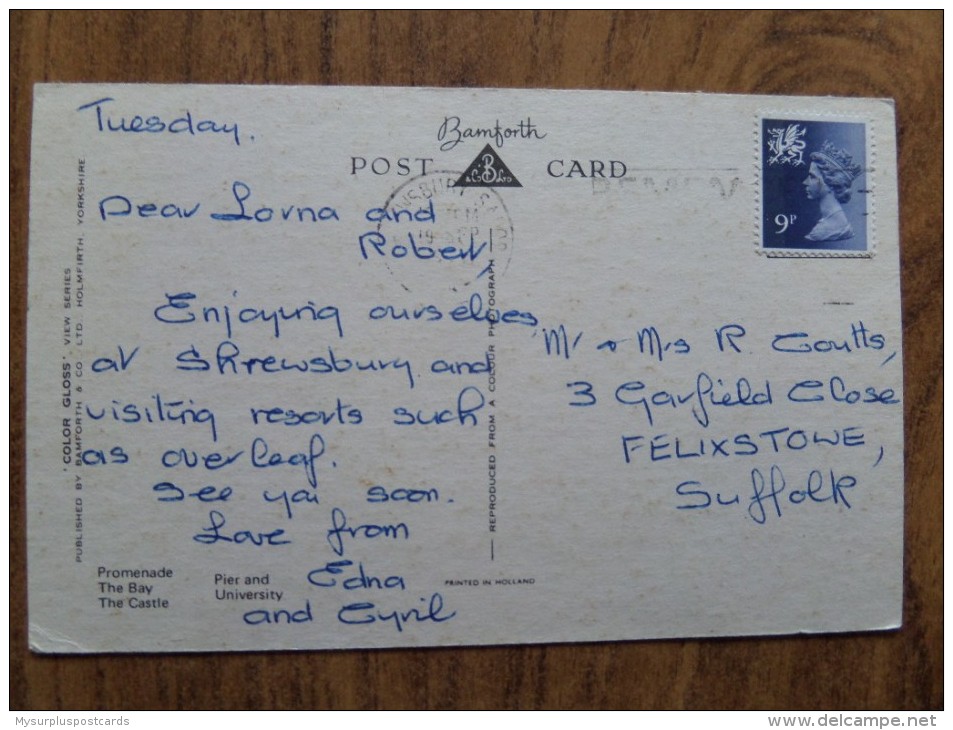 Tuesday.
Bamforth
POST CARD
B
& Co Ltd
9P
Dear Lorna and
Robert,
Enjoying ourselves
at Shrewsbury and
visiting resorts such
as overleaf.
See you soon.
Love from
Edna
and Cyril
Mr & Mrs R Coutts,
3 Garfield Close
FELIXSTOWE,
Suffolk
'COLOR GLOSS' VIEW SERIES
PUBLISHED BY BAMFORTH & CO LTD. HOLMFIRTH, YORKSHIRE
REPRODUCED FROM A COLOUR PHOTOGRAPH
Promenade
The Bay
The Castle
Pier and
University
PRINTED IN HOLLAND
Mysurpluspostcards
http://www.delcampe.net